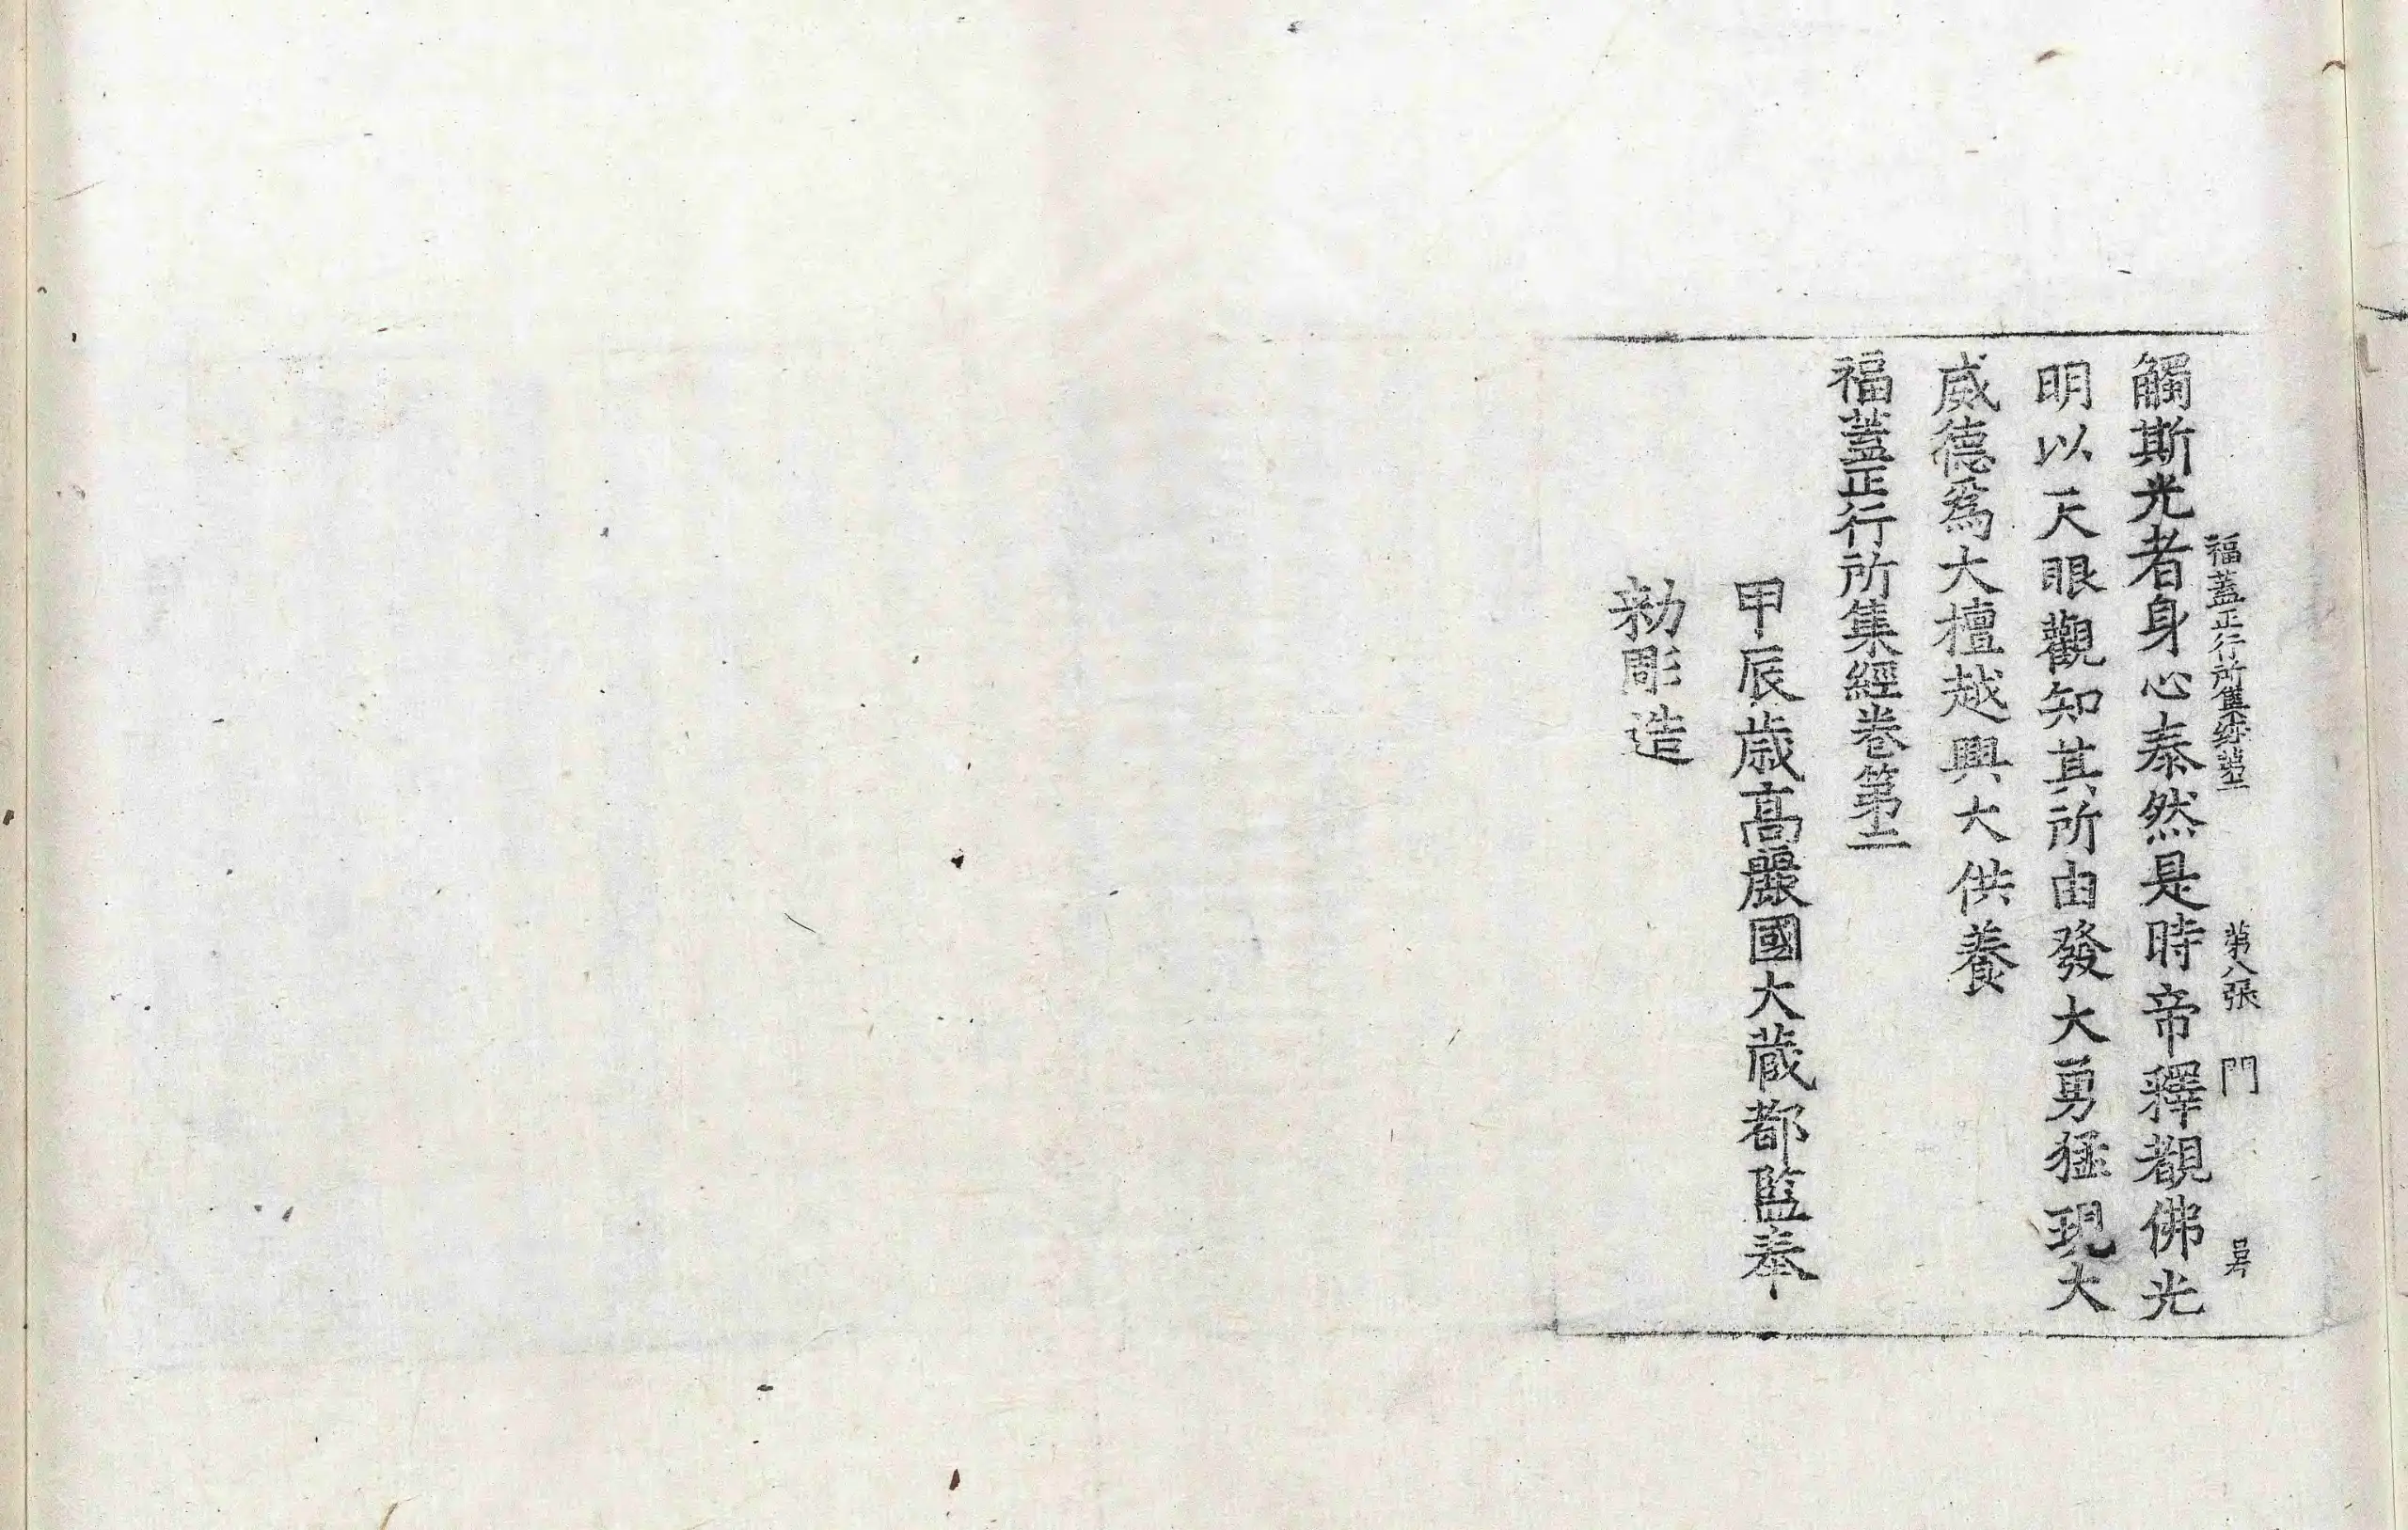 福蓋正行所集經第十二　第八張　門
觸斯光者身心泰然是時帝釋覩佛光
明以天眼觀知其所由發大勇猛現大
威德爲大檀越興大供養
福蓋正行所集經卷第十二
甲辰歲高麗國大藏都監奉
勑彫造